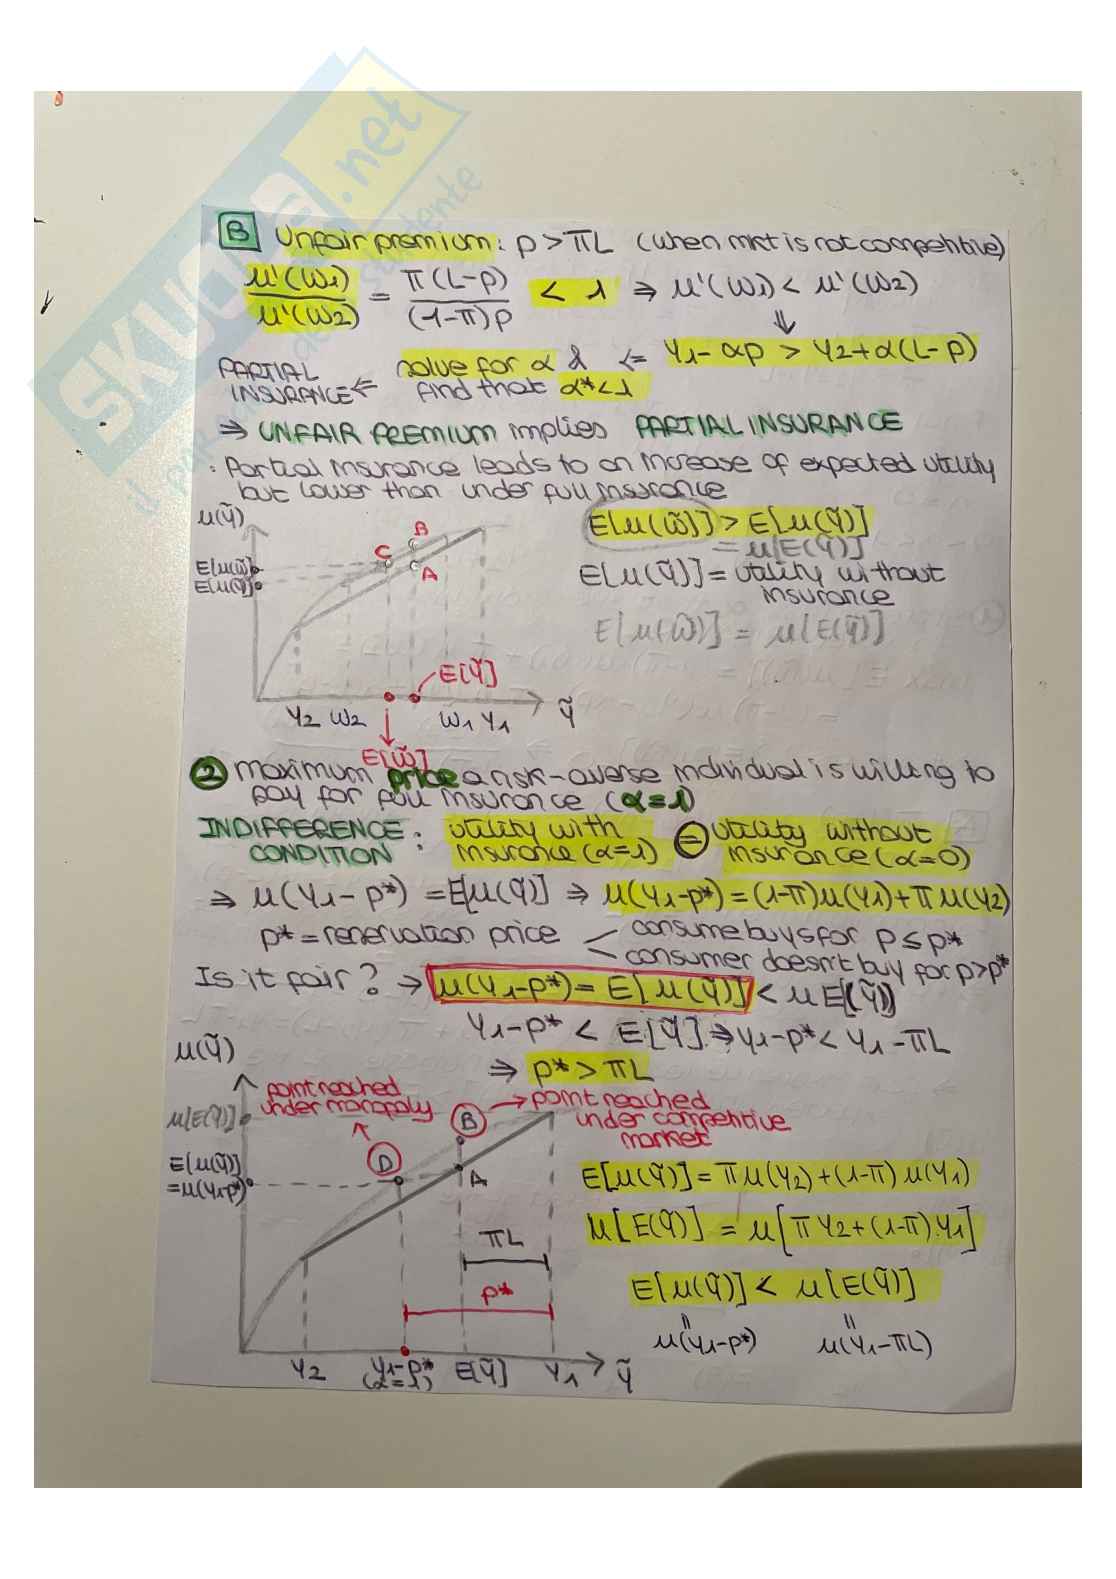 SKUOLA.net
il portale dello studente
B Unfair premium: p > πL (when mkt is not competitive)
μ'(W1)/μ'(W2) = π(L-p)/(1-π)p < 1 ⇒ μ'(W1) < μ'(W2)
⇓
PARTIAL INSURANCE ⇐ solve for α & find that α*<1 ⇐ Y1 - αp > Y2 + α(L-p)
⇒ UNFAIR PREMIUM implies PARTIAL INSURANCE
: Partial insurance leads to an increase of expected utility
but lower than under full insurance
μ(Ỹ)
E[μ(W̃)] > E[μ(Ỹ)]
= μ[E(Ỹ)]
E[μ(Ỹ)] = utility without
insurance
E[μ(W̃)] = μ[E(Ỹ)]
E[μ(W̃)]
E[μ(Ỹ)]
C B
A
E[Ỹ]
Y2 W2 W1 Y1 Ỹ
E[W̃]
2 maximum price a risk-averse individual is willing to
pay for full insurance (α=1)
INDIFFERENCE CONDITION : utility with insurance (α=1) = utility without insurance (α=0)
⇒ μ(Y1 - p*) = E[μ(Ỹ)] ⇒ μ(Y1-p*) = (1-π)μ(Y1) + πμ(Y2)
p* = reservation price < consume buys for p ≤ p*
< consumer doesn't buy for p>p*
Is it fair? → μ(Y1-p*) = E[μ(Ỹ)] < μE[(Ỹ)]
Y1-p* < E[Ỹ] ⇒ Y1-p* < Y1 - πL
⇒ p* > πL
μ(Ỹ)
point reached
under monopoly
point reached
under competitive
market
μ[E(Ỹ)]
E[μ(Ỹ)]
=μ(Y1-p*)
D B
A
E[μ(Ỹ)] = πμ(Y2) + (1-π)μ(Y1)
μ[E(Ỹ)] = μ[πY2 + (1-π)·Y1]
πL
p*
E[μ(Ỹ)] < μ[E(Ỹ)]
μ(Y1-p*) μ(Y1-πL)
Y2 Y1-p* E[Ỹ] Y1 Ỹ
(α=1)